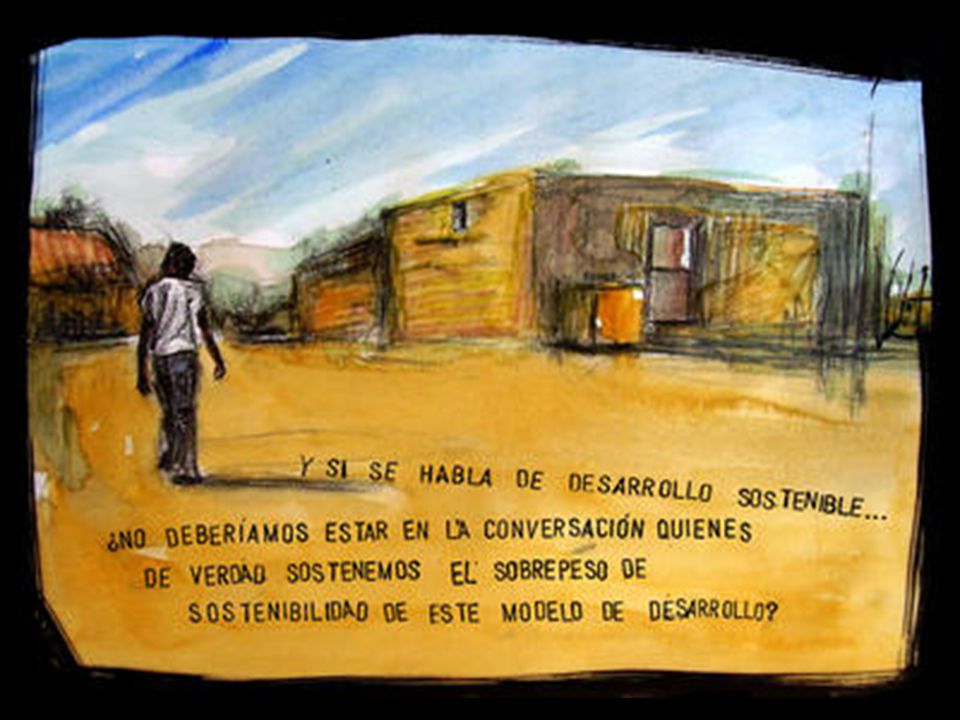 Y SI SE HABLA DE DESARROLLO SOSTENIBLE...
¿NO DEBERÍAMOS ESTAR EN LA CONVERSACIÓN QUIENES
DE VERDAD SOSTENEMOS EL SOBREPESO DE
SOSTENIBILIDAD DE ESTE MODELO DE DESARROLLO?